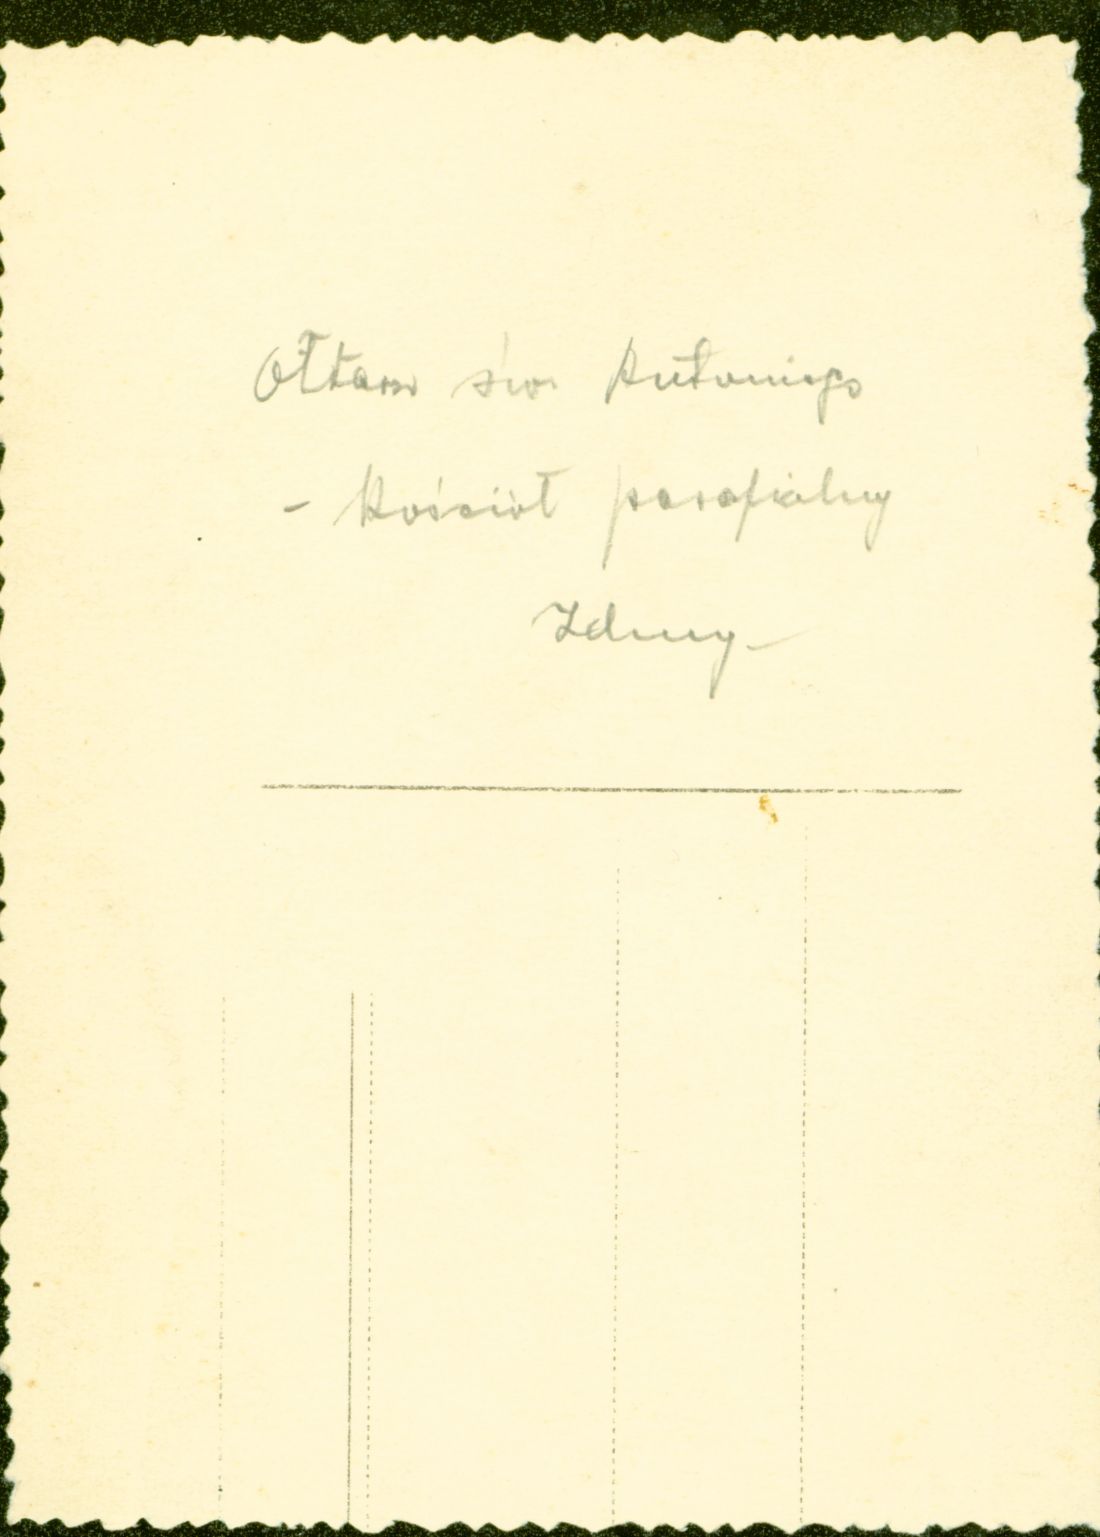 Ołtarz św. Antoniego
- Kościół parafialny
Zduny